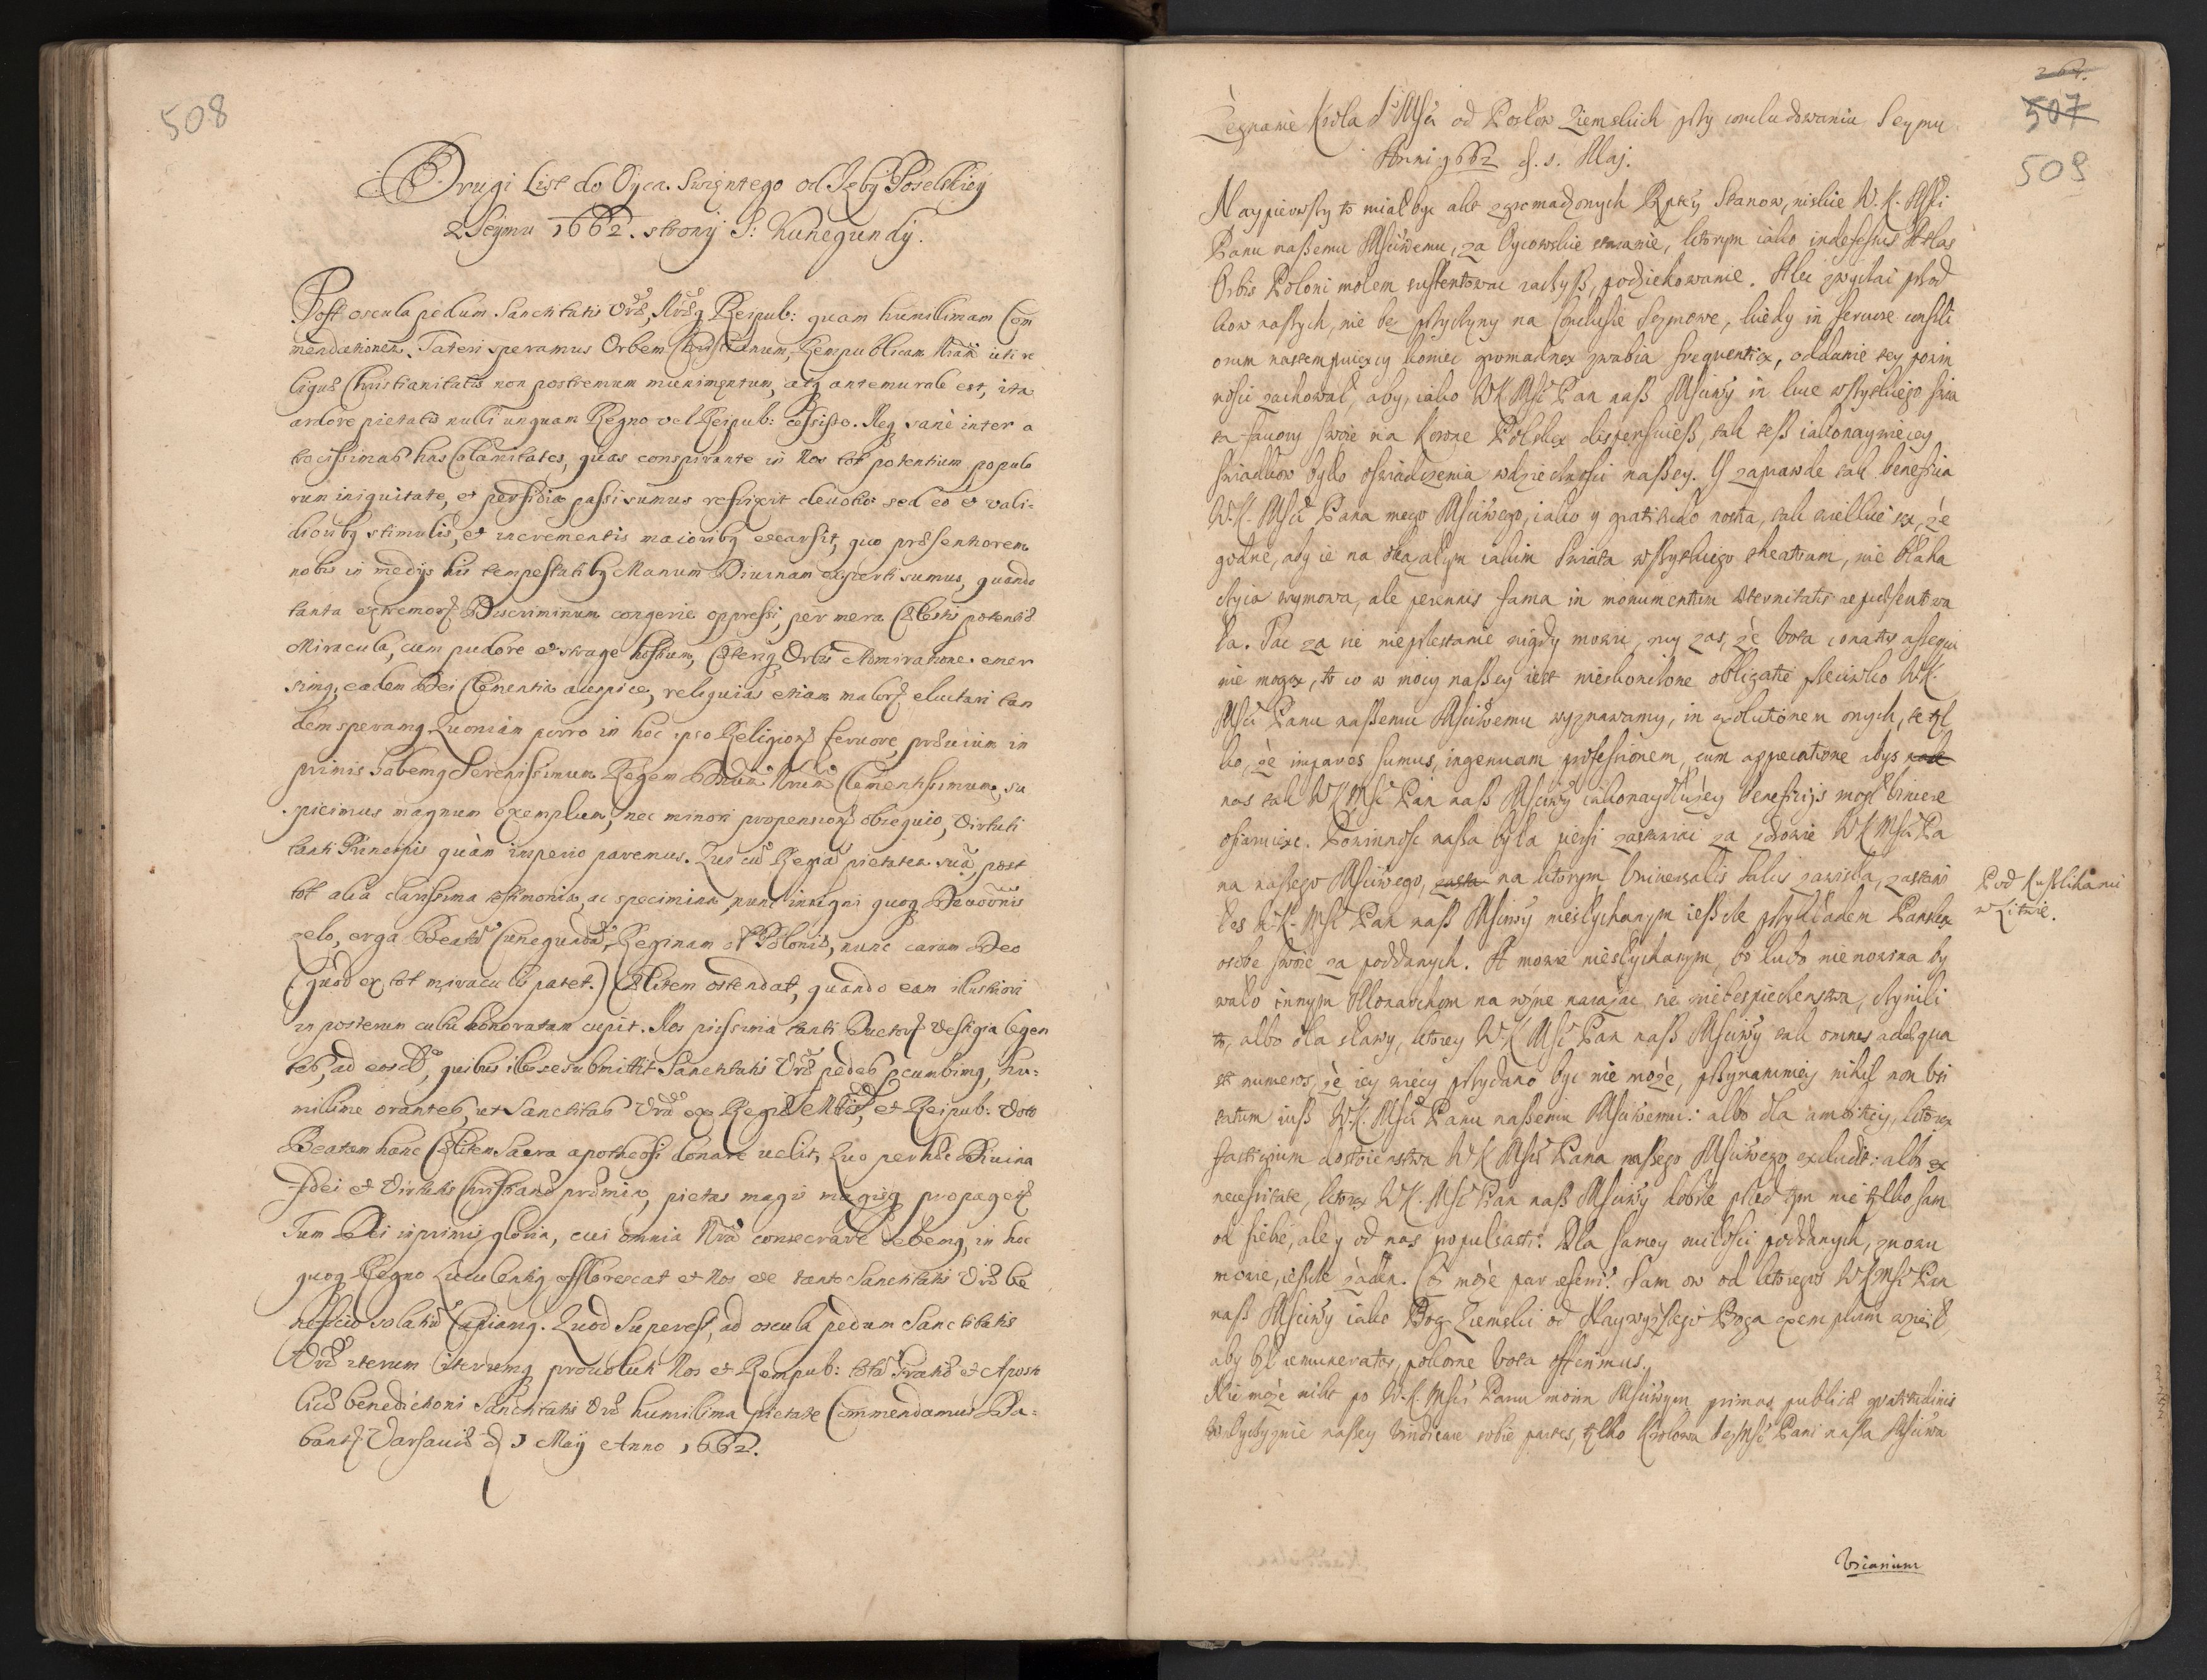 508
Drugi List do Oyca Swiętego od Izby Poselskiey
z Seymu 1662. strony S: Kunegundy.
Post oscula pedum Sanctitatis Vræ, Nræq Reipub: quam humilimam Com
mendationem. Fateri speramus Orbem Christianum, Rempublicam Nram uti re
liquæ Christianitatis non postremum munimentum, atq antemurale est, ita
ardore pietatis nulli unquam Regno vel Reipub: cessisse. Neq sanè inter a
trocissimas has Calamitates, quas conspirante in Nos tot potentium populo
rum iniquitate, et perfidia passi sumus refrixit devotio sed eo et vali-
dioribq stimulis, et incrementis maioribq exarsit, quo præsentiorem
nobis in medijs his tempestatibq Manum Diuinam experti sumus, quando
tanta extremorum Discriminum congerie oppressi, per mera Cælestis potentiæ
Miracula, cum pudore et strage hostium, Cæteriq Orbis Admiratione emer
simq, eadem Dei Clementia auspice, reliquias etiam malorum eluctari tan
dem speramq Quoniam porro in hoc ipso Religionis feruore, præuium in
primis habemq Serenissimum Regem Dnum Nrum Clementissimum, su
spicimus magnum exemplum, nec minori propensionis obsequio, Virtuti
tanti Principis quàm imperio paremus. Qui cũ Regiã pietatem suã, post
tot alia clarissima testimonia, ac specimina, nunc insigni quoq Deuotionis
zelo, erga Beatã Cunegundã, Reginam olim Poloniæ, nunc caram Deo
(quod ex tot miraculis patet.) Cælitem ostendat, quando eam illustriori
in posterum cultu honoratam cupit. Nos piissima tanti Ductoris vestigia legen
tes, ad eosd., quibus ille se submittit Sanctitatis Vræ pedes pcumbimq, hu-
millime orantes, ut Sanctitas Vra ex Regiæ Mttis, et Reipub: Voto
Beatam hanc Cælitem Sacra apotheosi donare uelit, Quo per hæc Diuina
fidei et Virtutis Christianæ præmia, pietas magis magisq propagetur
Tum Dei inprimis gloria, cui omnia Nra consecrare debemq, in hoc
quoq Regno Luculentiq efflorescat et Nos de tanto Sanctitatis Vræ be
neficio solatiũ Capiamq. Quod Superest, ad oscula pedum Sanctitatis
Vræ iterum iterumq prouoluti Nos et Rempub: totã Gratiæ et Aposto
licæ benedictioni Sanctitatis Vræ humillima pietate Commendamus Da-
bantur Varsauiæ d 1 Maij Anno 1662.
264.
507
509
Żegnanie Krola JeMści od Posłow Ziemskich przy concludowaniu Seymu
Anni 1662 d. 1. Maj.
Naypierwszy to miał byc akt zgromadzonych Rptey Stanow, niskie W. K. Msci
Panu naszemu Msciwemu, za Oycowskie staranie, ktorym iako indefessus Atlas
Orbis Poloni molem sustentowac raczysz, podziekowanie. Alec zwyczai przod
kow naszych, nie bez przyczyny na Conclusie Seymowe, kiedy in feruore consili
orum nastempuiący koniec gromadney zwabia frequentiey, oddanie tey powin
nosci zachował, aby, iako WK Msc Pan nasz Msciwy in luce wszytkiego swia
ta fauory swoie na Korone Polską dispensuiesz, tak tesz iakonaywiecey
swiadkow było oswiadczenia wdziecznosci naszey. Y zaprawde tak beneficia
W.K. Msci Pana mego Msciwego, iako y gratitudo nostra, tak wielkie są, że
godne, aby ie na okazałym iakim Swiata wszytkiego theatrum, nie błaha
czyia wymowa, ale perennis fama in monumentum æternitatis repræsentowa
ła. Tac za nie nieprzestanie nigdy mowic, my zas, że Vota conatus assequi
nie mogą, to co w mocy naszey iest nieskonczone obligatie przeciwko WK.
Msci Panu naszemu Msciwemu wyznawamy, in exolutionem onych, te tyl
ko, że impares sumus, ingenuam professionem, cum apprecatione abys
nas tak WK Msc Pan nasz Msciwy iakonaydłużey beneficijs mogł vincere
ofiaruiąc. Powinnosc nasza była piersi zastawiac za zdrowie WK Msci Pa
na naszego Msciwego, na ktorym Vniuersalis salus zawisła, zastawi
łes W.K. Msc Pan nasz Msciwy niesłychanym ieszcze przykładem Panską
osobe swoie za poddanych. A mowie niesłychanym, bo lubo nie nowina by
wało innym Monarchom na rożne narażac sie niebespieczenstwa, czynili
to, albo dla sławy, ktorey WK Msc Pan nasz Msciwy tak omnes adæqua
st numeros, że iey wiecy przydano byc nie może, przynamniey nihil non vsi
tatum iusz W.K. Msci Panu naszemu Msciwemu: albo dla ambitiey, ktorą
fastigium dostoienstwa WK Msci Pana naszego Msciwego excludit: albo ex
necessitate, ktorą WK. Msc Pan nasz Msciwy dobrze przed tym nie tylko sam
od siebie, ale y od nas propulsasti. Dla samey miłosci poddanych, znowu
mowie, ieszcze żaden. Coż może par referri? Sam ow od ktorego WK Msc Pan
nasz Msciwy iako Bog Ziemski od Naywyższego Boga exemplum wzioł,
aby był remunerator, pokorne Vota offerimus.
Nie może nikt po W.K. Msci Panu moim Msciwym primas publicæ gratitudinis
w Oyczyznie naszey vindicare sobie partes, tylko Krolowa JeyMsc Pani nasza Msciwa
Pod Kuszlikami
w Litwie.